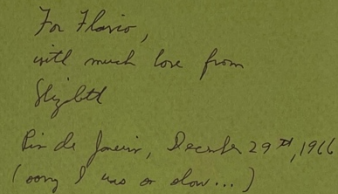 For Flavio,
with much love from
Elizabeth
Rio de Janeiro, December 29th, 1966
(sorry I was so slow...)